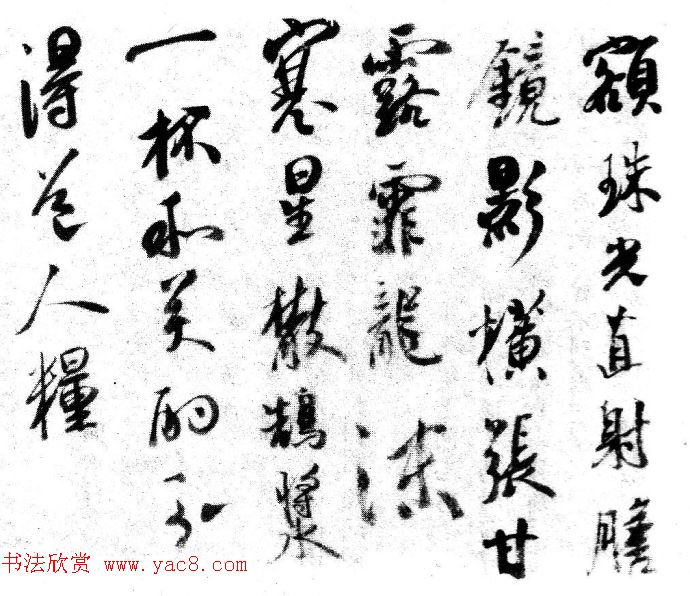 額珠光直射膽
鏡影橫張甘
露霏龍沫
寒星散鵠漿
一杯和美酌
得道人糧
书法欣赏 www.yac8.com